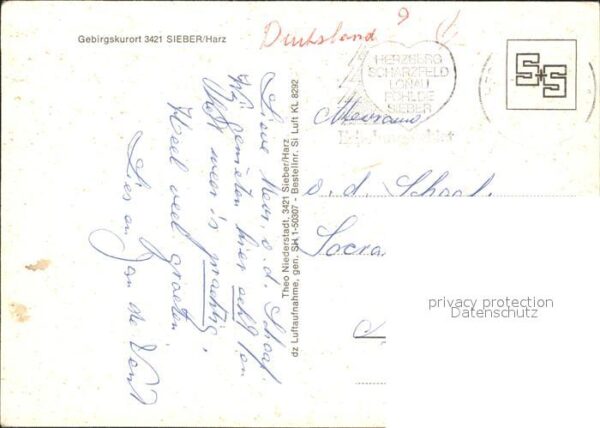 Gebirgskurort 3421 SIEBER/Harz
Duitsland
HERZBERG
SCHARZFELD
LONAU
SIEBER
S+S
Lieve Mevr. v. d. Schoof.
Wij genieten hier echt van
Het weer is prachtig.
Heel veel groeten
Lies en Jan de
Theo Niederstadt, 3421 Sieber/Harz
dz Luftaufnahme, gen. SH 1-50307 - Bestellnr. Si Luft KL 8292
v. d. Schoof.
privacy protection
Datenschutz